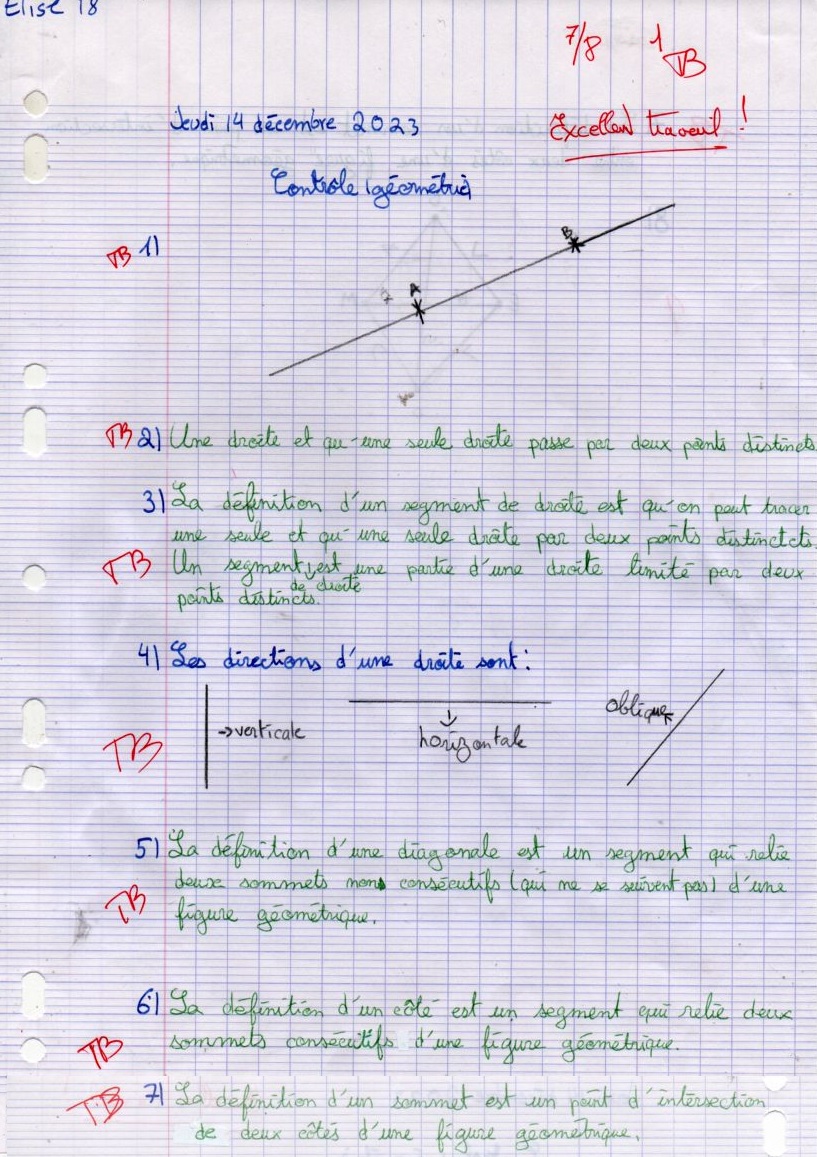 Elise 18
7/8 1 TB
Jeudi 14 décembre 2023
Excellent travail !
Contrôle géométrie
TB 1)
B
A
TB 2) Une droite et qu-une seule droite passe par deux points distincts
3) La définition d'un segment de droite est qu'on peut tracer
une seule et qu-une seule droite par deux points distinctcts.
TB Un segment est une partie d'une droite limité par deux
de droite
points distincts.
4) Les directions d'une droite sont :
oblique
→verticale
horizontale
TB
5) La définition d'une diagonale est un segment qui relie
deux sommets nons consécutifs (qui ne se suivent pas) d'une
TB figure géométrique.
6) La définition d'un côté est un segment qui relie deux
TB sommets consécutifs d'une figure géométrique.
TB 7) La définition d'un sommet est un point d'intersection
de deux côtés d'une figure géométrique.